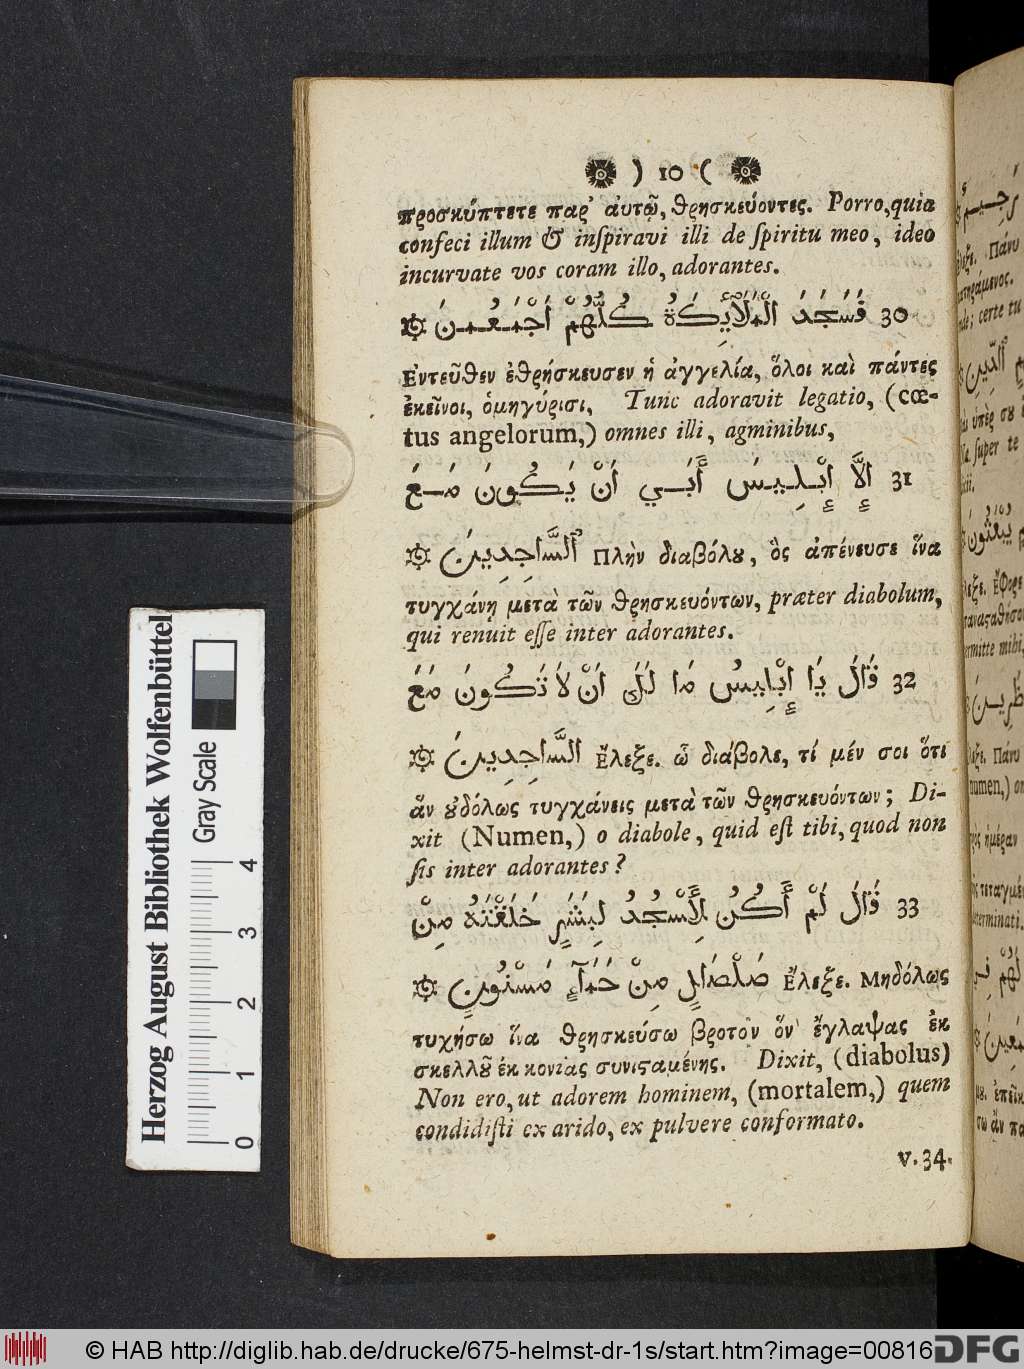 ) 10 (
προσκύπτετε παρ' αυτῷ, θρησκεύοντες. Porro, quia
confeci illum & inſpiravi illi de ſpiritu meo, ideo
incurvate vos coram illo, adorantes.
30 فَسَجَدَ الْمَلَائِكَةُ كُلُّهُمْ أَجْمَعُونَ
Εντεῦθεν ἐθρήσκευσεν ἡ ἀγγελία, ὅλοι καὶ πάντες
ἐκεῖνοι, ὁμηγύρισι, Tunc adoravit legatio, (cœ-
tus angelorum,) omnes illi, agminibus,
31 إِلَّا إِبْلِيسَ أَبَي أَنْ يَكُونَ مَعَ
السَّاجِدِينَ Πλὴν διαβόλου, ὃς ἀπένευσε ἵνα
τυγχάνῃ μετὰ τῶν θρησκευόντων, præter diabolum,
qui renuit eſſe inter adorantes.
32 قَالَ يَا إِبْلِيسُ مَا لَكَ أَنْ لَا تَكُونَ مَعَ
السَّاجِدِينَ Ἔλεξε. ὦ διάβολε, τί μέν σοι ὅτι
ἂν ουδόλως τυγχάνεις μετὰ τῶν θρησκευόντων; Di-
xit (Numen,) o diabole, quid eſt tibi, quod non
ſis inter adorantes?
33 قَالَ لَمْ أَكُنْ لِأَسْجُدُ لِبَشَرٍ خَلَقْتَهُ مِنْ
صَلْصَالٍ مِنْ حَمَاءٍ مَسْنُونٍ Ἔλεξε. Μηδόλως
τυχήσω ἵνα θρησκεύσω βροτὸν ὅν ἔγλαψας ἐκ
σκελλοῦ ἐκ κονίας συνισταμένης. Dixit, (diabolus)
Non ero, ut adorem hominem, (mortalem,) quem
condidiſti ex arido, ex pulvere conformato.
v. 34.
Herzog August Bibliothek Wolfenbüttel
Gray Scale
0 1 2 3 4
© HAB http://diglib.hab.de/drucke/675-helmst-dr-1s/start.htm?image=00816
DFG